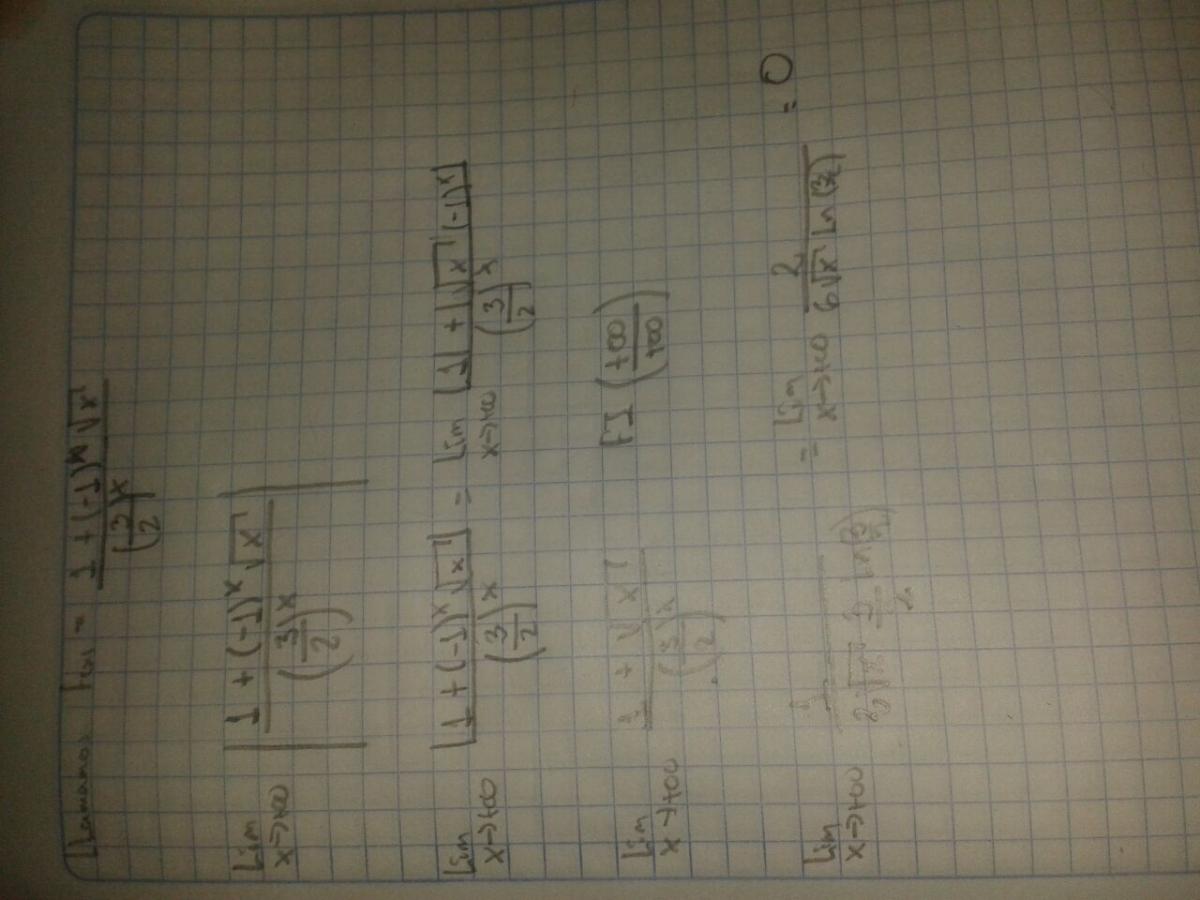 Llamamos f(x) = (1 + (-1)^x √x) / (3/2)^x
Lim x→+∞ | (1 + (-1)^x √x) / (3/2)^x |
Lim x→+∞ |1 + (-1)^x √x| / (3/2)^x = Lim x→+∞ (|1| + |√x (-1)^x|) / (3/2)^x
Lim x→+∞ (1 + √x) / (3/2)^x FI (+∞/+∞)
Lim x→+∞ 1 / (2√x 3/2 ln(3/2)) = Lim x→+∞ 2 / (6√x ln(3/2)) = 0